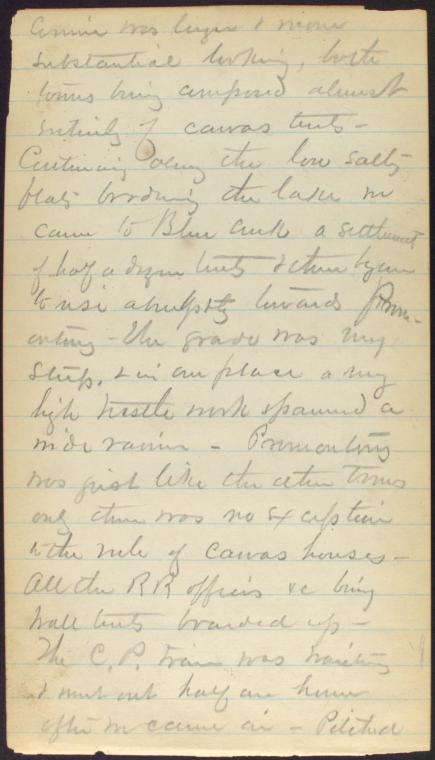 Corinne was larger & more
substantial looking, both
towns being composed almost
entirely of canvas tents –
Continuing along the low salty
flats bordering the lake we
came to Blue Creek a settlement
of half a dozen tents & then began
to rise abruptly towards Prom-
ontory – The grade was very
steep, & in one place a very
high trestle work spanned a
wide ravine – Promontory
was just like the other towns
only there was no exception
to the rule of canvas houses –
All the RR offices &c being
wall tents boarded up –
The C. P. train was waiting
& went out half an hour
after we came in –